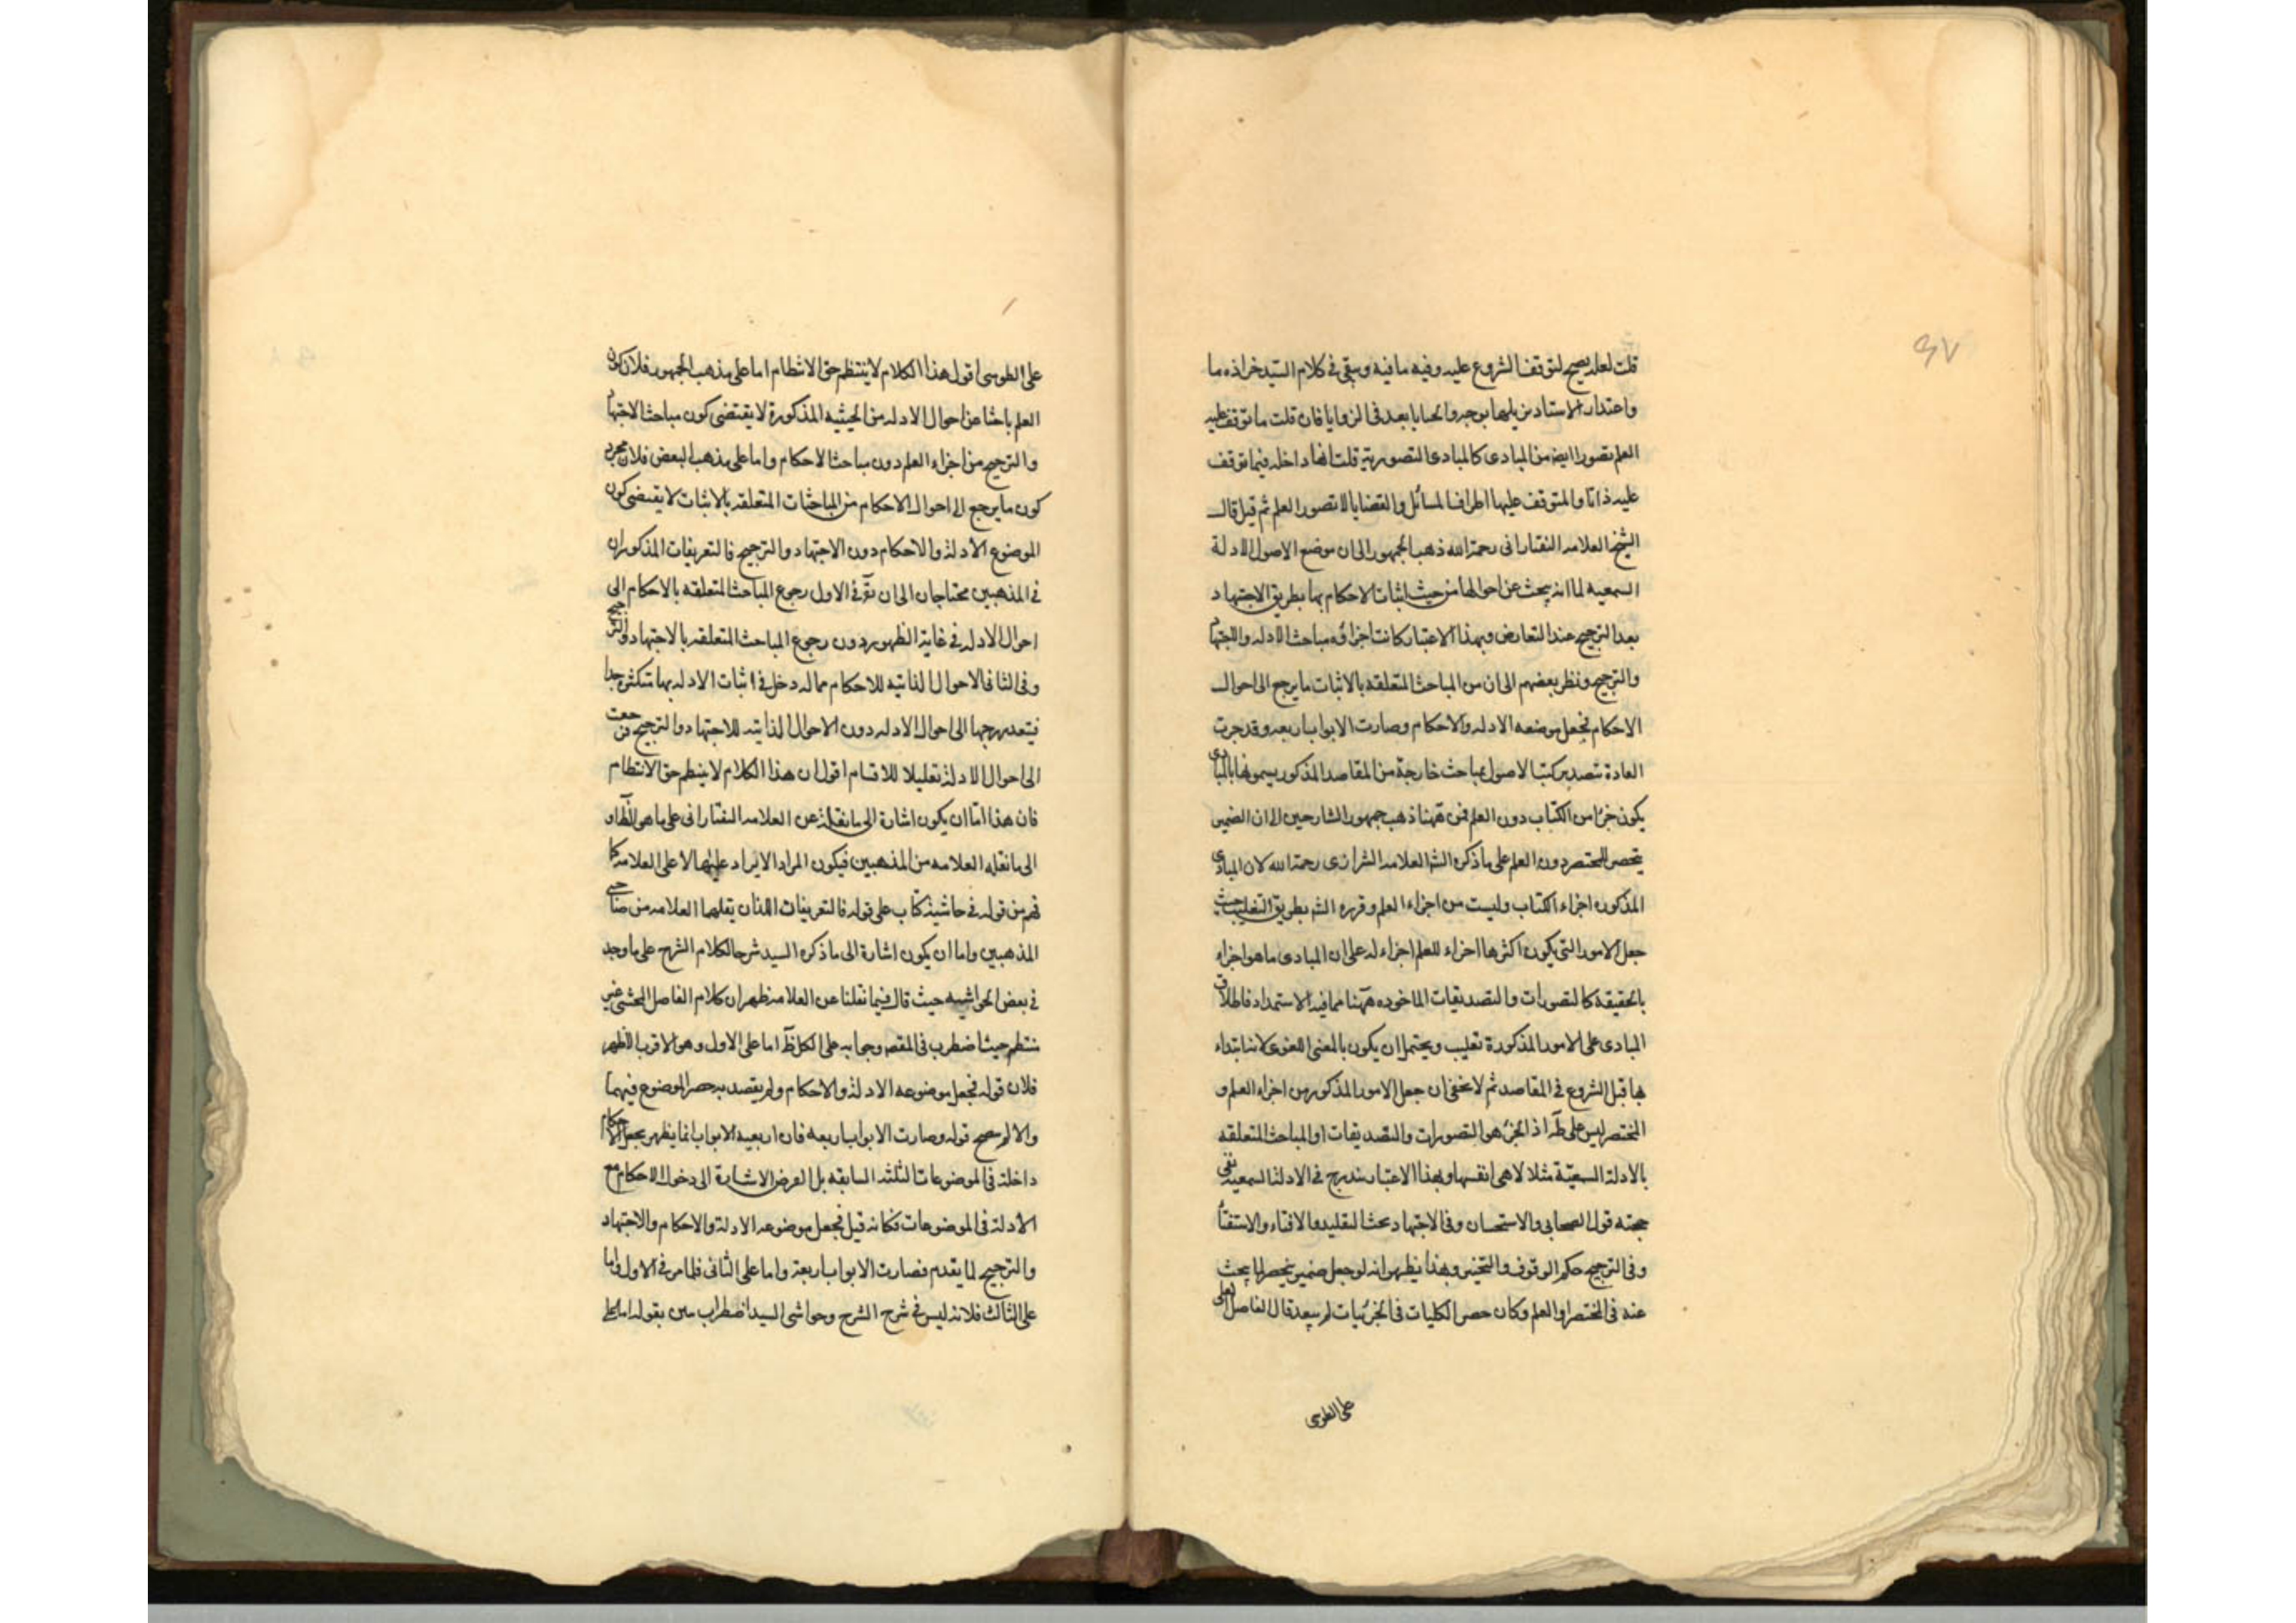 ٤٧
قلت لعله يصح لتوقف الشروع عليه وفيه ما فيه وسيقى فى كلام السيد خر اذه ما
واعتذار الاستاد بوجه وانحبايا بعد فى الزوايا فان قلت ما توقف عليه
العلم تصورا ايض من المبادى كالمبادى التصوريه قلت انها داخله فيما توقف
عليه ذاتا والمتوقف عليها اطراف المسائل والقضايا لا تصور العلم ثم قيل قال
الشيخ العلامه التفتازانى رحمة الله ذهب الجمهور الى ان موضع الاصول الادلة
السمعيه لما انه يبحث عن احوالها من حيث اثبات الاحكام بها بطريق الاجتهاد
بعد الترجيح عند التعارض وبهذا الاعتبار كانت اجزاؤه مباحث الادله والاجتها
والترجيح ونظر بعضهم الى ان من المباحث المتعلقه بالاثبات ما يرجع الى احوال
الاحكام فجعل موضعه الادله والاحكام وصارت الابواب اربعه وقد جرت
العادة بتصدير كتب الاصول بمباحث خارجة من المقاصد المذكور يسمونها بالمبادى
يكون جزأ من الكتاب دون العلم فمن ههنا ذهب جمهور الشارحين الى ان الضمير
ينحصر للمختصر دون العلم على ما ذكره الشه العلامه الشيرازى رحمة الله لان المبادى
المذكوره اجزاء الكتاب وليست من اجزاء العلم وقرره الشه بطريق التغليب حيث
جعل الامور التى يكون اكثرها اجزاء للعلم اجزاء له على ان المبادى ما هو اجزاء
بالحقيقة كالتصورات والتصديقات الماخوده ههنا مما فيه الاستمداد فاطلاق
المبادى على الامور المذكورة تغليب ويحتمل ان يكون بالمعنى اللغوى لانها ابتداء
بها قبل الشروع فى المقاصد ثم لا يخفى ان جعل الامور المذكور من اجزاء العلم و
المختصر ليس على ظه اذ الجزء هو التصورات والتصديقات او المباحث المتعلقه
بالادلة السمعيّة مثلا لا هى انفسها وبهذا الاعتبار يندرج فى الادلة السمعيه نفى
حجته قول الصحابى والاستحسان وفى الاجتهاد بحث التقليد والافتاء والاستفتا
وفى الترجيح حكم الوقوف والتخيير وبهذا يظهر انه لو جعل ضمير ينحصر لما يبحث
عنه فى المختصر او العلم وكان حصر الكليات فى الجزئيات لم يبعد قال الفاضل لعلى
على الطوسى
على الطوسى اقول هذا الكلام لا ينتظم حق الانتظام اما على مذهب الجمهور فلان كون
العلم باحثا عن احوال الادله من الحيثيه المذكورة لا يقتضى كون مباحث الاجتها
والترجيح من اجزاء العلم دون مباحث الاحكام واما على مذهب البعض فلان مجرد
كون ما يرجع الى احوال الاحكام من المباحثات المتعلقه بالاثبات لا يقتضى كون
الموضوع الادلة والاحكام دون الاجتهاد والترجيح فالتعريفات المذكوران
فى المذهبين محتاجان الى ان تق فى الاول رجوع المباحث المتعلقه بالاحكام الى
احوال الادله فى غاية الظهور دون رجوع المباحث المتعلقه بالاجتهاد والترجيح
وفى الثانى الاحوال الذاتيه للاحكام مما له دخل فى اثبات الادله بها تتكثر جدا
فيتعدد رجها الى احوال الادله دون الاحوال الذاتيه للاجتهاد والترجيح فرجعت
الى احوال الادلة تقليلا للاقسام اقول ان هذا الكلام لا ينتظم حق الانتظام
فان هذا اما ان يكون اشارة الى ما نقله عن العلامه التفتازانى على ما هو الظاهر او
الى ما نقله العلامه من المذهبين فيكون المراد الايراد عليهما لا على العلامه كما
فهم من قوله فى حاشية كتاب على قوله فالتعريفات اللذان يقلهما العلامه من صاحبى
المذهبين واما ان يكون اشارة الى ما ذكره السيد شرحا لكلام الشرح على ما وجد
فى بعض الحواشيه حيث قال فيما نقلنا عن العلامه ظهر ان كلام الفاضل المحشى غير
منتظم حيث اضطرب فى المقصه وجوابه على الكل ظه اما على الاول وهو الاقرب الظهر
فلان قوله فجعل موضوعه الادلة والاحكام ولم يقصد به حصر الموضوع فيهما
والا لم يصح قوله وصارت الابواب اربعه فان اربعيه الابواب انما يظهر بجعل الاحكام
داخلة فى الموضوعات الثلثه السابقه بل الغرض الاشارة الى دخول الاحكام مع
الادلة فى الموضوعات فكانه قيل فجعل موضوعه الادلة والاحكام والاجتهاد
والترجيح لما يقدم فصارت الابواب اربعة واما على الثانى فلما مر فى الاول واما
على الثالث فلانه ليس فى شرح الشرح وحواشى السيد اضطراب بين بقوله اما على